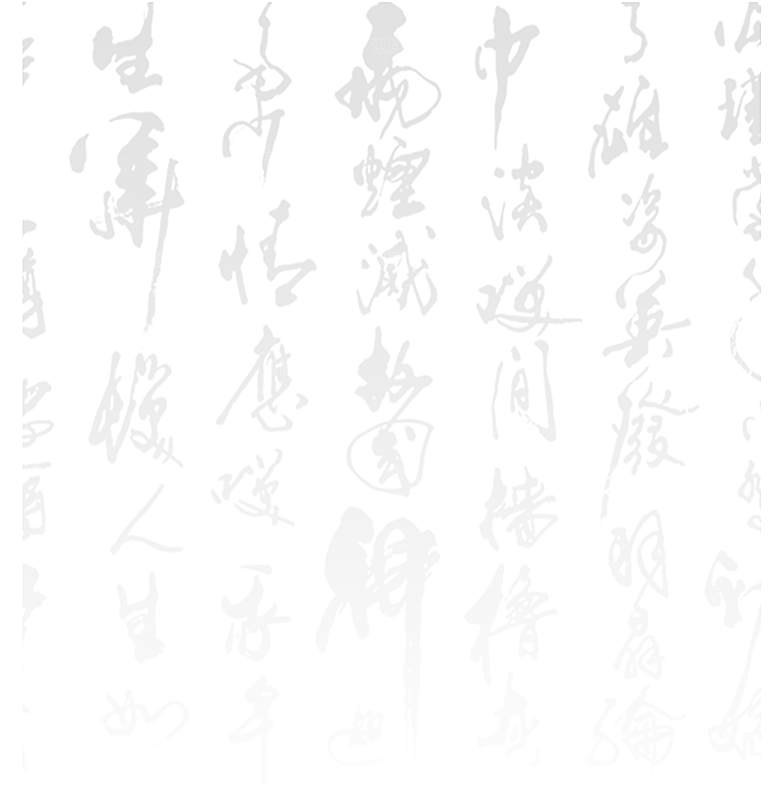 瑾當年小喬初嫁
了雄姿英發羽扇綸
巾談笑間檣櫓灰
飛煙滅故國神遊
多情應笑我早
生華髮人生如